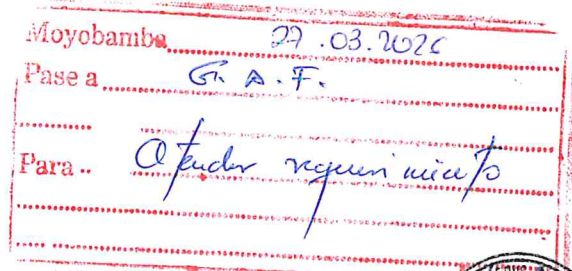 Moyobamba 27.03.2026
Pase a G. A. F.
Para.. Atender requerimiento